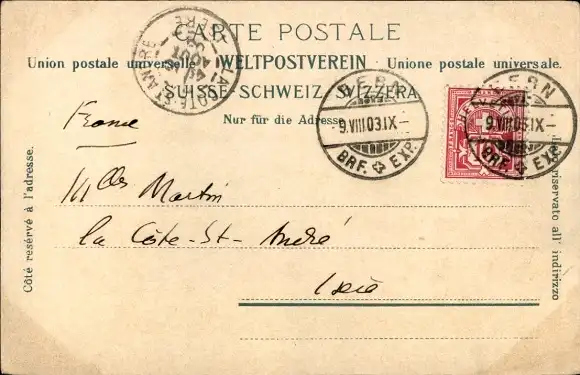 CARTE POSTALE
Union postale universelle. WELTPOSTVEREIN. Unione postale universale.
SUISSE. SCHWEIZ. SVIZZERA.
Nur für die Adresse.
LA CÔTE-ST-ANDRÉ
ISÈRE
BERN
9.VIII.03.IX
BRF. EXP.
BERN
9.VIII.03.IX
BRF. EXP.
France
Mlles Martin
La Côte-St-André
Isère
Côté resérvé à l'adresse.
riservato all' indirizzo